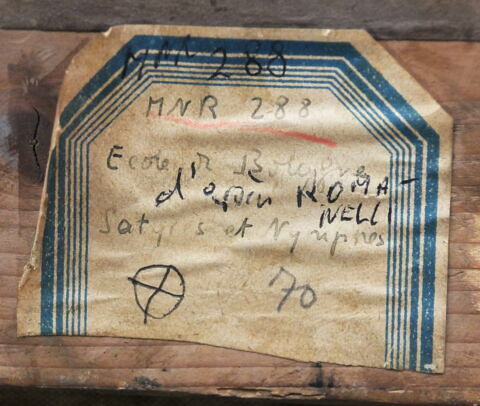 MNR 288
MNR 288
Ecole de Bologne
d'après ROMA-
NELLI
Satyres et Nymphes
70